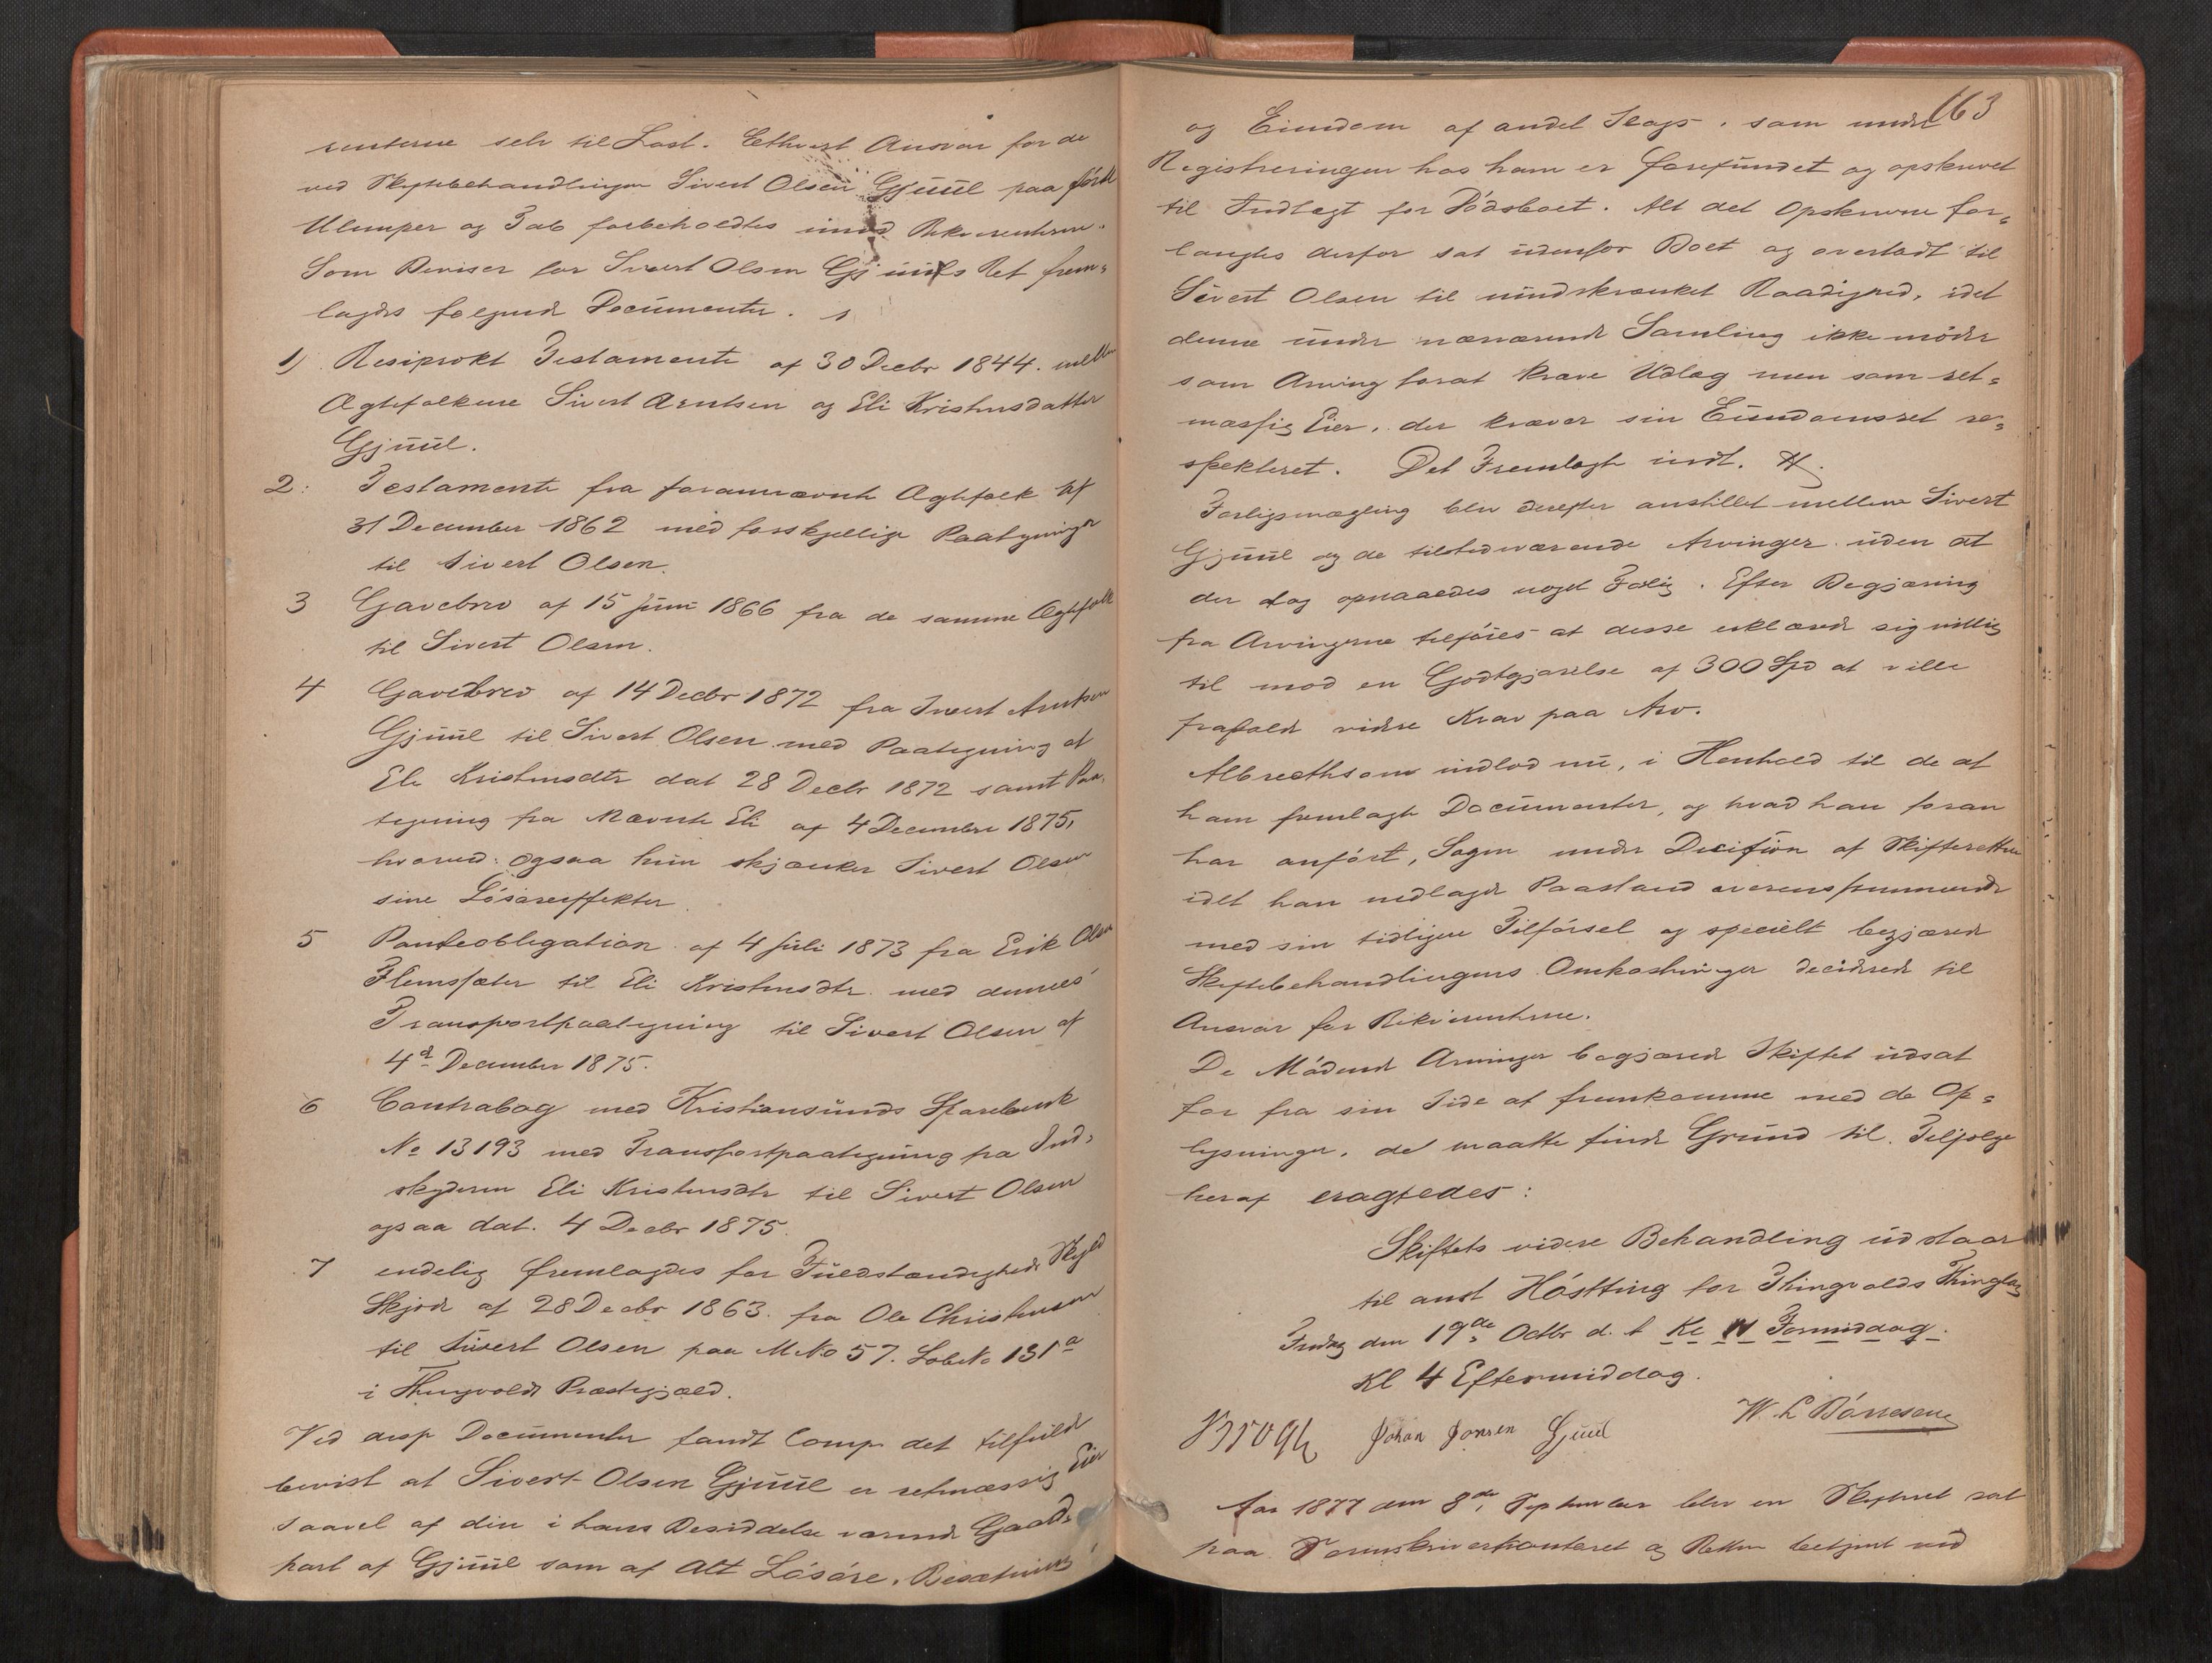 renterne selv til Last. Ethvert Ansvar for de
ved Skiftebehandlingen Sivert Olsen Gjüül paa førte
Ulemper og Tab forbeholdtes imod Rekvirenterne.
Som Beviser for Sivert Olsen Gjüüls Ret frem=
lagdes følgende Documenter.
1) Resiprokt Testamente af 30 Decbr 1844. mellem
Ægtefolkene Sivert Arntsen og Eli Kristensdatter
Gjüül.
2: Testamente fra forannævnte Ægtefolk af
31 December 1862 med forskjellige Paategninger
til Sivert Olsen.
3 Gavebrev af 15 Juni 1866 fra de samme Ægtefolk
til Sivert Olsen.
4 Gavebrev af 14 Decbr 1872 fra Sivert Arntsen
Gjüül til Sivert Olsen med Paategning af
Eli Kristensdtr dat 28 Decbr 1872 samt Paa=
tegning fra Nævnte Eli af 4 December 1875,
hvorved ogsaa hun skjænker Sivert Olsen
sine Løsøreeffekter.
5 Panteobligation af 4 Juli 1873 fra Erik Olsen
Flemsæter til Eli Kristensdtr. med dennes
Transportpaategning til Sivert Olsen af
4de December 1875.
6 Contrabog med Kristiansunds Sparebank
No 13193 med Transportpaategning fra Ind=
skyderen Eli Kristensdtr til Sivert Olsen
ogsaa dat. 4 Decbr 1875.
7 endelig fremlagdes for Fuldstændigheds Skyld
Skjøde af 28 Decbr 1863. fra Ole Christensen
til Sivert Olsen paa M No 57. Løb No 131a
i Thingvolds Præstegjæld.
Ved disse Documenter fandt Comp. det tilfulde
bevist at Sivert Olsen Gjüül er retmæssig Eier
saavel af den i hans Besiddelse værende Gaard=
part af Gjüül som af Alt Løsøre, Besætning
163
og Eiendom af andet Slags, som under
Registreringen hos ham er forefundet og opskrevet
til Indtægt for Dødsboet. Alt det Opskrevne for=
langtes derfor sat udenfor Boet og overladt til
Sivert Olsen til uindskrænket Raadighed, idet
denne under nærværende Samling ikke møder
som Arving forat kræve Udlæg men som ret=
mæssig Eier, der kræver sin Eiendomsret re=
spekteret. Det Fremlagte indt.
Forligsmægling blev derefter anstillet mellem Sivert
Gjüül og de tilstedeværende Arvinger uden at
der dog opnaaedes noget Forlig. Efter Begjæring
fra Arvingerne tilføies at disse erklærede sig villig
til mod en Godtgjørelse af 300 Spd at ville
frafalde videre Krav paa Arv.
Albrecthson indlod nu, i Henhold til de af
ham fremlagte Documenter, og hvad han foran
har anført, Sagen under Decision af Skifteretten
idet han nedlagde Paastand overensstemmende
med sin tidligere Tilførsel og specielt begjærede
Skiftebehandlingens Omkostninger deciderede til
Ansvar for Rekvirenterne.
De Mødende Arvinger begjærede Skiftet udsat
for fra sin Side at fremkomme med de Op=
lysninger, de maatte finde Grund til. Tilfølge
heraf eragtedes:
Skiftets videre Behandling udstaar
til anst Høstting for Thingvolds Thinglag
Fredag den 19de Octbr d. A. Kl 11 Formiddag.
Kl 4 Eftermiddag.
W. L Børresen
Krogh Johan Jonsen Gjuul
Aar 1877 den 8de September blev en Skifteret sat
paa Sorenskriverkontoret og Retten betjent ved